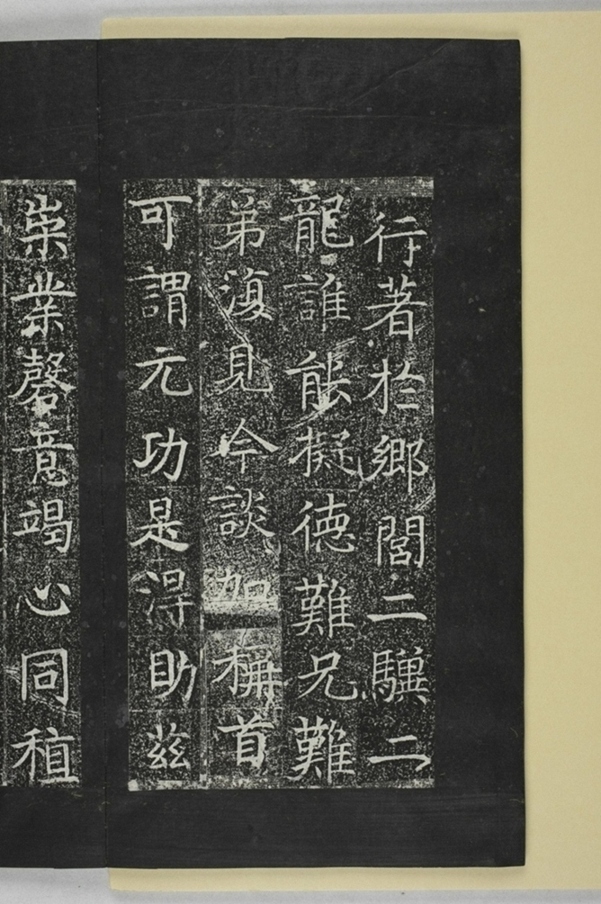 行著於鄉閭二驥二
龍誰能擬德難兄難
弟復見今談加稱首
可謂元功是得助茲
崇業磬意竭心同稙